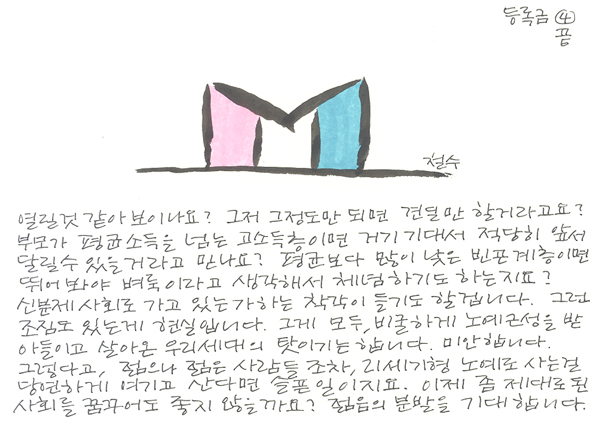 등록금 ④
픔
철수
열릴것 같아 보이나요? 그저 그정도만 되면 견딜만 할거라고요?
부모가 평균소득을 넘는 고소득층이면 거기 기대서 적당히 앞서
달릴수 있을거라고 만나요? 평균보다 많이 낮은 빈곤계층이면
뛰어봐야 벼룩이라고 생각해서 체념하기도 하는지요?
신분제 사회로 가고 있는가하는 착각이 들기도 할겁니다. 그런
조짐도 있는게 현실입니다. 그게 모두, 비굴하게 노예근성을 받
아들이고 살아온 우리세대의 탓이기는 합니다. 미안합니다.
그렇다고, 젊으나 젊은 사람들 조차, 21세기형 노예로 사는걸
당연하게 여기고 산다면 슬픈일이지요. 이제 좀 제대로 된
사회를 꿈꾸어도 좋지 않을까요? 젊음의 분발을 기대합니다.